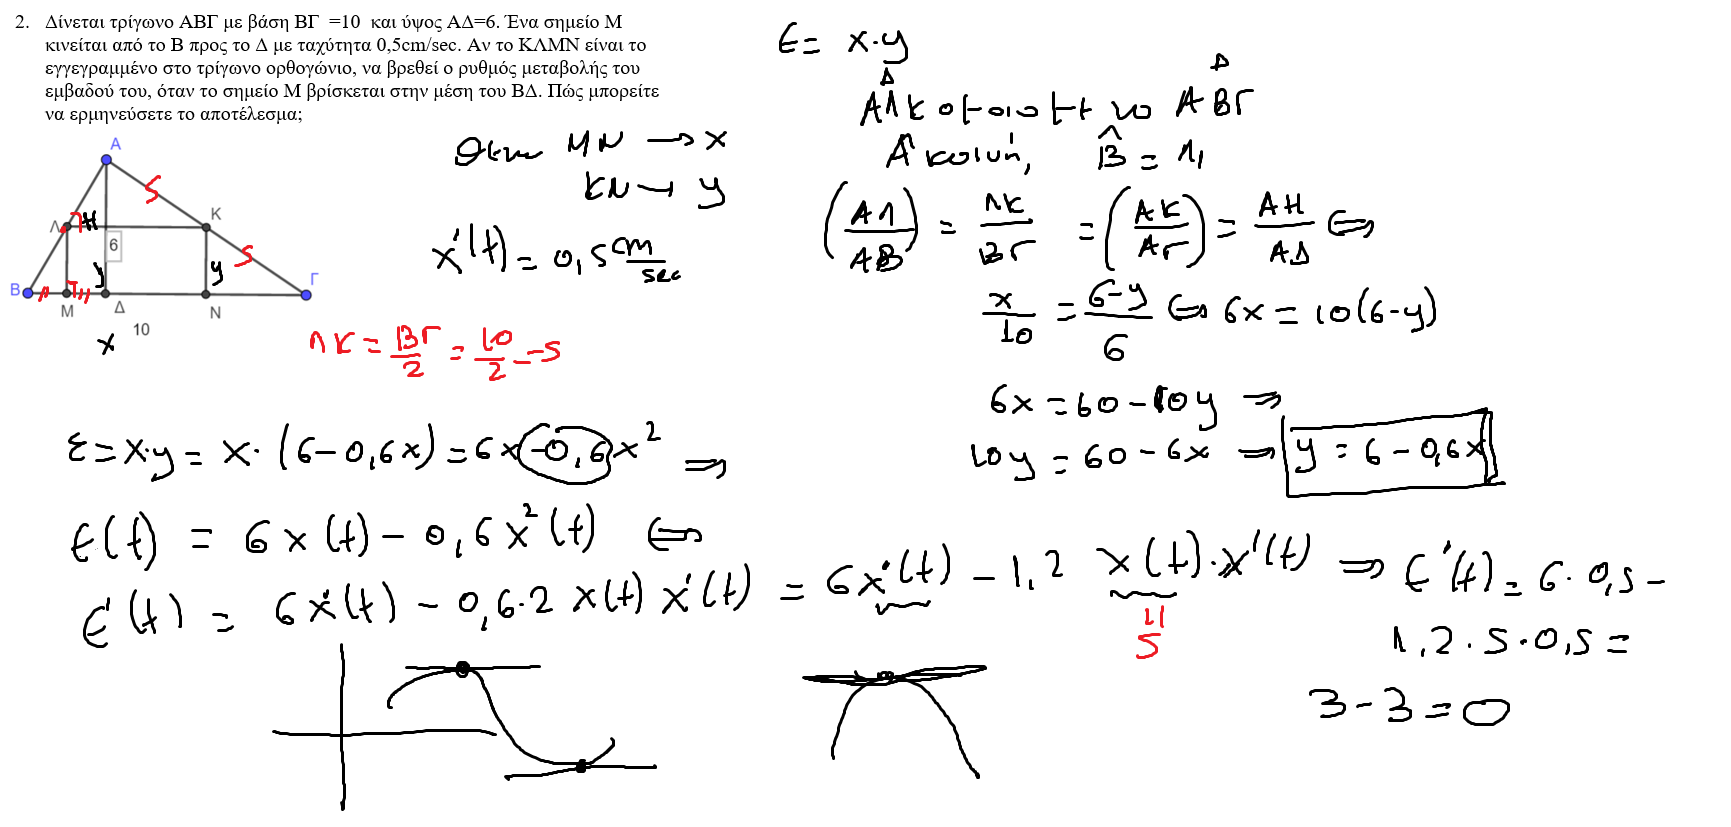 2. Δίνεται τρίγωνο ΑΒΓ με βάση ΒΓ =10 και ύψος ΑΔ=6. Ένα σημείο Μ
κινείται από το Β προς το Δ με ταχύτητα 0,5cm/sec. Αν το ΚΛΜΝ είναι το
εγγεγραμμένο στο τρίγωνο ορθογώνιο, να βρεθεί ο ρυθμός μεταβολής του
εμβαδού του, όταν το σημείο Μ βρίσκεται στην μέση του ΒΔ. Πώς μπορείτε
να ερμηνεύσετε το αποτέλεσμα;
Α
5
Λ
Η
Κ
6
5
y
y
Β
Γ
Μ
Δ
Ν
10
x
ΜΝ → x
ΚΝ → y
x'(t) = 0,5 cm/sec
ΛΚ = ΒΓ/2 = 10/2 = 5
Ε = x·y
ΑΛΚ όμοιο με το ΑΒΓ
Α κοινή, Β̂ = Λ₁
(ΑΛ/ΑΒ) = ΛΚ/ΒΓ = (ΑΚ/ΑΓ) = ΑΗ/ΑΔ ⇔
x/10 = (6-y)/6 ⇔ 6x = 10(6-y)
6x = 60 - 10y ⇒
10y = 60 - 6x ⇒ y = 6 - 0,6x
Ε = x·y = x·(6-0,6x) = 6x - 0,6x² ⇒
Ε(t) = 6x(t) - 0,6x²(t) ⇔
Ε'(t) = 6x'(t) - 0,6·2 x(t) x'(t) = 6x'(t) - 1,2 x(t)·x'(t) ⇒ Ε'(t) = 6·0,5 -
=
5
1,2·5·0,5 =
3-3=0